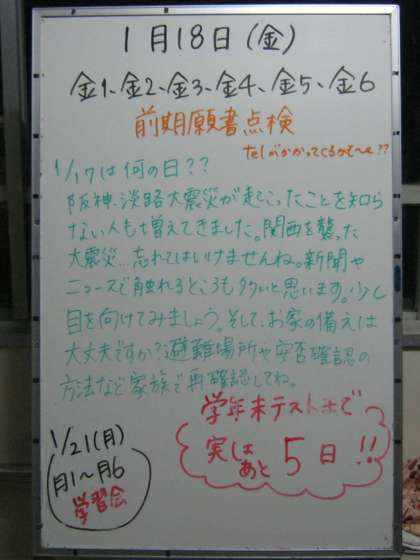 1月18日(金)
金1、金2、金3、金4、金5、金6
前期願書点検
telがかかってくるかも〜よ??
1/17は何の日??
阪神・淡路大震災が起こったことを知ら
ない人も増えてきました。関西を襲った
大震災…忘れてはいけませんね。新聞や
ニュースで触れるところも多いと思います。少し
目を向けてみましょう。そして、お家の備えは
大丈夫ですか?避難場所や安否確認の
方法など家族で再確認してね。
学年末テストまで
実はあと5日!!
1/21(月)
月1〜月6
学習会